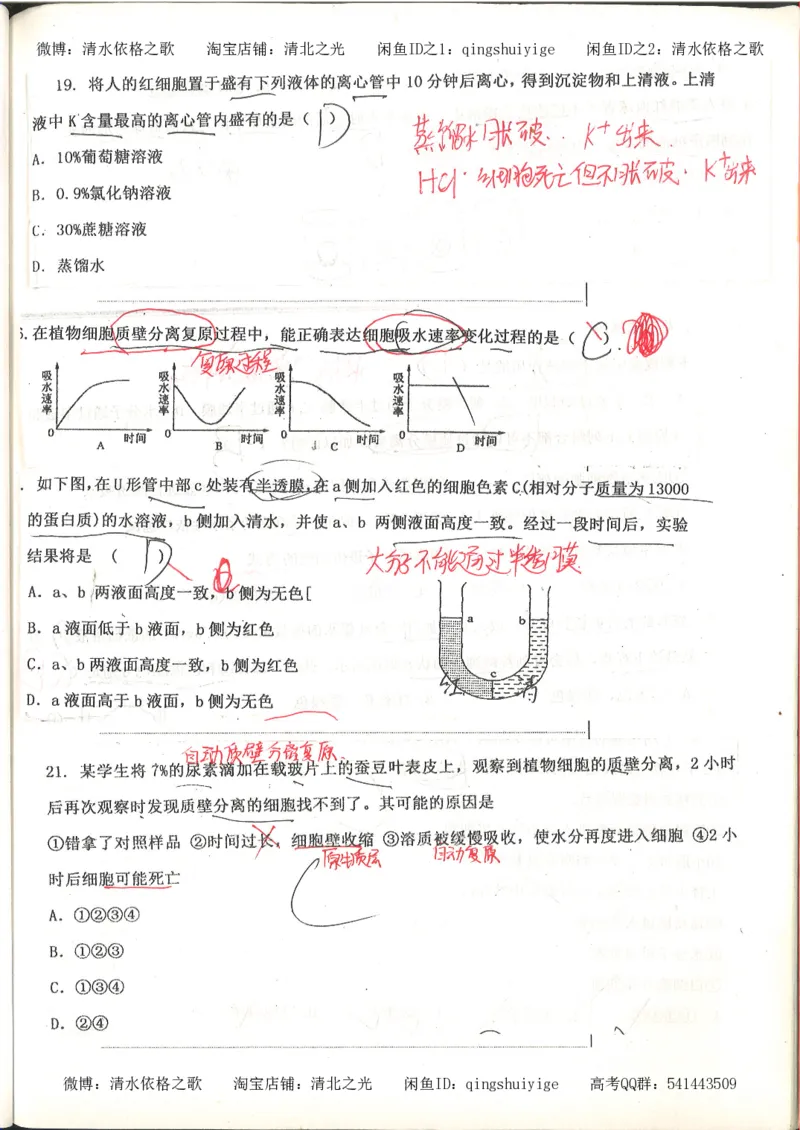 微博：清水依格之歌 淘宝店铺：清北之光 闲鱼ID之1：qingshuiyige 闲鱼ID之2：清水依格之歌
19. 将人的红细胞置于盛有下列液体的离心管中 10 分钟后离心，得到沉淀物和上清液。上清
液中 K 含量最高的离心管内盛有的是（ D ）
蒸馏水胀破．K⁺出来
A．10%葡萄糖溶液
HCl．细胞死亡但不胀破．K⁺出来
B．0.9%氯化钠溶液
C．30%蔗糖溶液
D．蒸馏水
6．在植物细胞质壁分离复原过程中，能正确表达细胞吸水速率变化过程的是（ C ）．
复原过程
吸水速率 吸水速率 吸水速率 吸水速率
0 时间 0 时间 0 时间 0 时间
A B C D
．如下图，在 U 形管中部 c 处装有半透膜，在 a 侧加入红色的细胞色素 C(相对分子质量为 13000
的蛋白质)的水溶液，b 侧加入清水，并使 a、b 两侧液面高度一致。经过一段时间后，实验
结果将是 （ D ）
大分子不能通过半透膜
A．a、b 两液面高度一致，b 侧为无色[
B．a 液面低于 b 液面，b 侧为红色
C．a、b 两液面高度一致，b 侧为红色
D．a 液面高于 b 液面，b 侧为无色
a b
c
红 清
自动质壁分离复原
21. 某学生将 7%的尿素滴加在载玻片上的蚕豆叶表皮上，观察到植物细胞的质壁分离，2 小时
后再次观察时发现质壁分离的细胞找不到了。其可能的原因是
①错拿了对照样品 ②时间过长，细胞壁收缩 ③溶质被缓慢吸收，使水分再度进入细胞 ④2 小
原生质层 自动复原
时后细胞可能死亡
C
A．①②③④
B．①②③
C．①③④
D．②④
微博：清水依格之歌 淘宝店铺：清北之光 闲鱼ID：qingshuiyige 高考QQ群：541443509